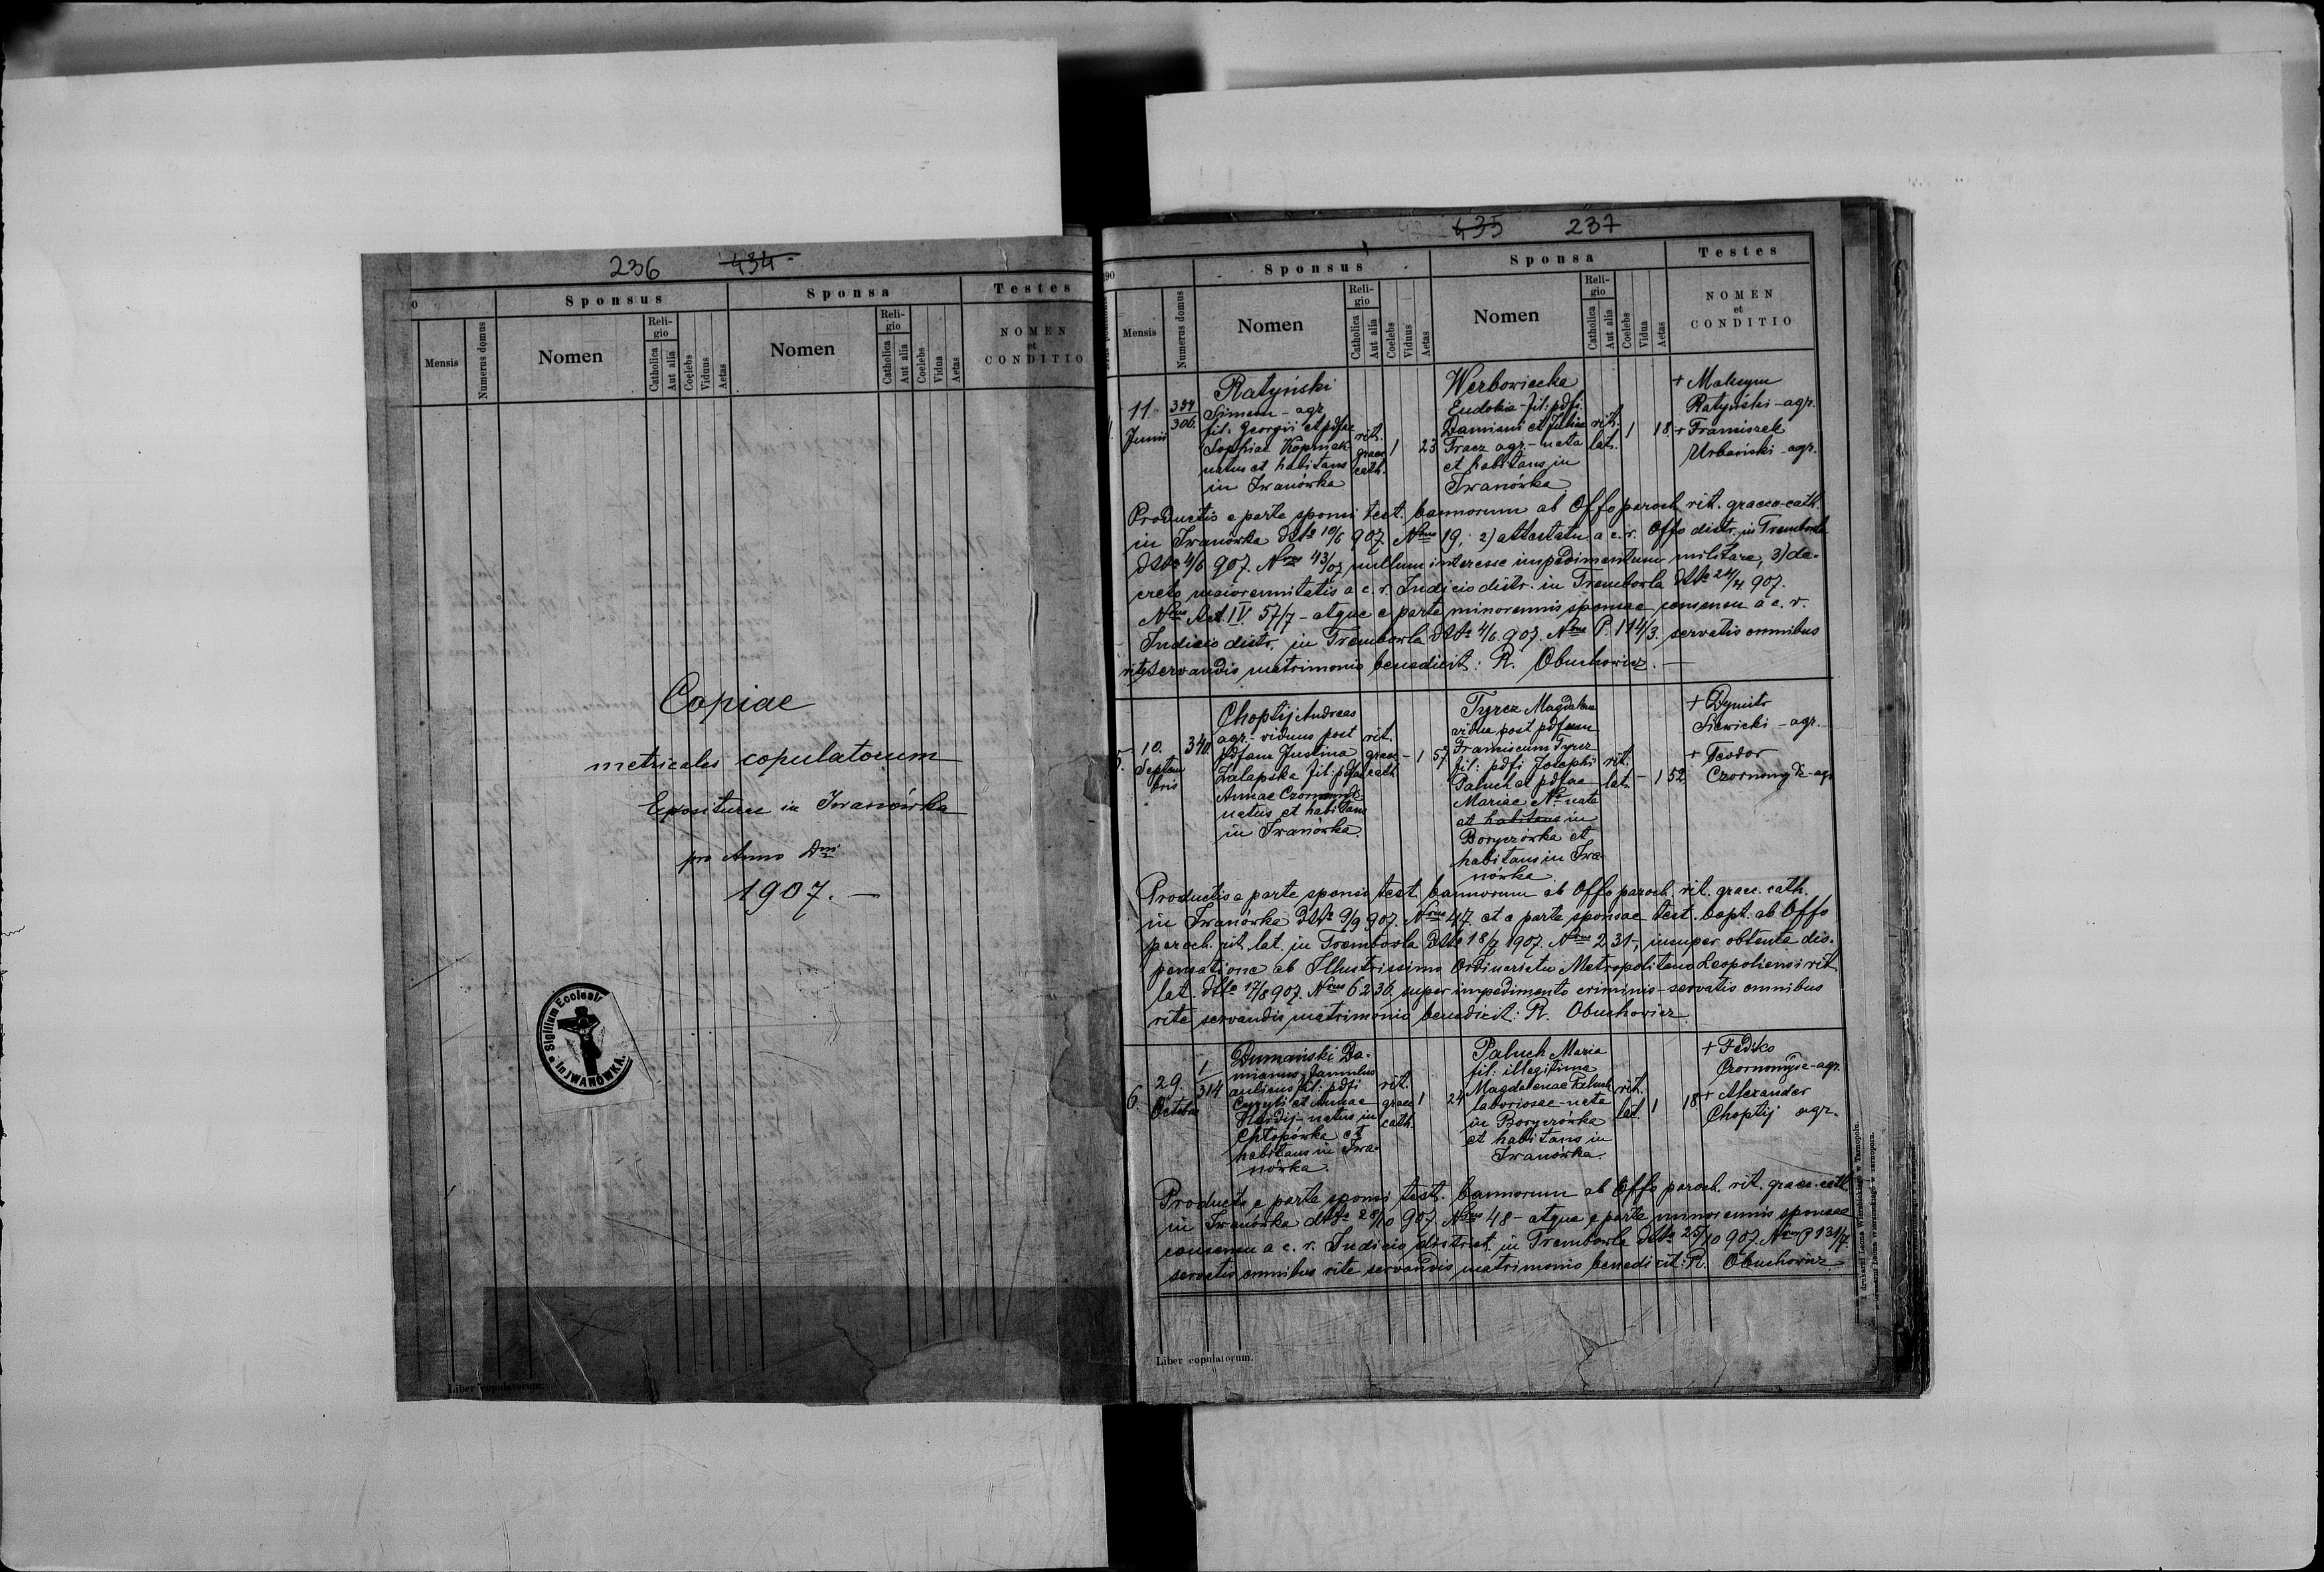 236 434
Sponsus Sponsa Testes
Mensis Numerus domus Nomen Religio Catholica Aut alia Coelebs Viduus Aetas Nomen Religio Catholica Aut alia Coelebs Vidua Aetas NOMEN et CONDITIO
Copiae
metricales copulatorum
Expositurae in Iwanówka
pro Anno Dni
1907. —
Sigillum Ecclesiae in JWANÓWKA.
Liber copulatorum.
435 237
190
Sponsus Sponsa Testes
Mensis Numerus domus Nomen Religio Catholica Aut alia Coelebs Viduus Aetas Nomen Religio Catholica Aut alia Coelebs Vidua Aetas NOMEN et CONDITIO
11. Junii
306.
Ratyński
Simeon - agr.
fil: Georgii et pdfae
Sophiae
natus et habitans
in Iwanówka
rit. graec. cath.
1 23
Werbowiecka
Eudokia - fil: pdfi
Damiani et Juliae
Tracz agr. - nata
et habitans in
Iwanówka
rit. lat.
1 18
+ Maksym
Ratyński - agr.
+ Franciszek
Urbański - agr.
Productis e parte sponsi test. bannorum ab Offo paroch. rit. graeco-cath.
in Iwanówka dtto 10/6 907. Nrus 19; 2) attestatu a c. r. Offo distr. in Trembowla
dtto 4/6 907. Nrus 43/07 nullum interesse impedimentum militare, 3) de-
creto maiorennitatis a c. r. Judicio distr. in Trembowla dtto 24/4 907.
Nrus Act. IV. 57/7 - atque e parte minorennis sponsae consensu a c. r.
Judicio distr. in Trembowla dtto 4/6 907. Nrus P. 114/3. servatis omnibus
rite servandis matrimonio benedicit: R. Obuchowicz. —
5. 10. Septembris
340
Choptij Andreas
agr. - viduus post
pdfam Justina
Zalapska fil: pdfae
Annae
natus et habitans
in Iwanówka.
rit. graec. cath.
- 1 57
Tyrcz Magdalena
vidua post pdfum
Franciscum Tyrcz
fil: pdfi Josephi
Paluch et pdfae
Mariae N. nata
et habitans in
Boryczówka et
habitans in Iwa-
nówka
rit. lat.
- 1 52
+ Dymitr
Siewicki - agr.
+ Teodor
Czornomydz - agr.
Productis e parte sponsi test. bannorum ab Offo paroch. rit. graec. cath.
in Iwanówka dtto 9/9 907. Nrus 47 et e parte sponsae test. bapt. ab Offo
paroch. rit. lat. in Trembowla dtto 18/7 1907. Nrus 231-, insuper obtenta dis-
pensatione ab Illustrissimo Ordinariatu Metropolitano Leopoliensi rit.
lat. dtto 17/8 907. Nrus 6236 super impedimento criminis - servatis omnibus
rite servandis matrimonio benedicit: R. Obuchowicz.
6. 29. Octobris
1
314
Dumański Da-
mianus, famulus
aulicus fil: pdfi
Cyryli et Annae
Hardij - natus in
Chłopówka et
habitans in Iwa-
nówka.
rit. graec. cath.
1 24
Paluch Maria
fil: illegitima
Magdalenae Paluch
laboriosae - nata
in Boryczówka
et habitans in
Iwanówka.
rit. lat.
1 18
+ Fedko
Czornomydz - agr.
+ Alexander
Choptij agr.
Producto e parte sponsi test. bannorum ab Offo paroch. rit. graec. cath.
in Iwanówka dtto 28/10 907. Nrus 48 - atque e parte minorennis sponsae
consensu a c. r. Judicio district. in Trembowla dtto 25/10 907. Nrus P 131/7.
servatis omnibus rite servandis matrimonio benedicit: R. Obuchowicz.
Liber copulatorum.
Z drukarni Leona Wierzbickiego w Tarnopolu.